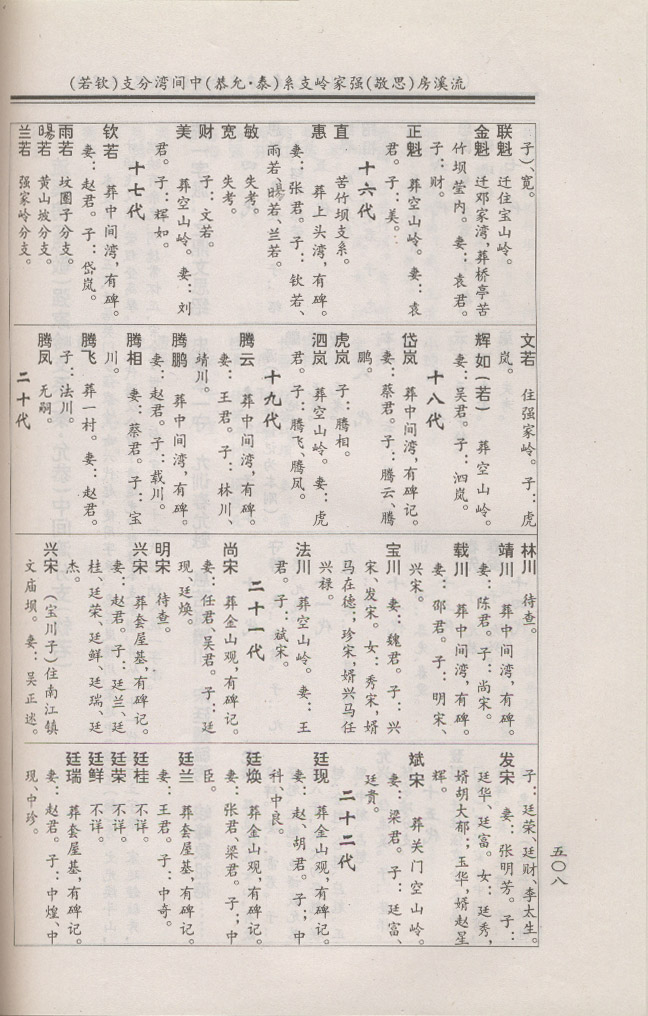 流溪房(敬思)强家岭支系(泰·允恭)中间湾分支(钦若)
子)、宽。
联魁 迁住宝山岭。
金魁 迁邓家湾,葬桥亭苦
竹坝茔内。妻:袁君。
子:财。
正魁 葬空山岭。妻:袁
君。子:美。
十六代
直 苦竹坝支系。
惠 葬上头湾,有碑。
妻:张君。子:钦若、
雨若、旸若、兰若。
敏 失考。
宽 失考。
财 子:文若。
美 葬空山岭。妻:刘
君。子:辉如。
十七代
钦若 葬中间湾,有碑。
妻:赵君。子:岱岚。
雨若 坟圈子分支。
旸若 黄山坡分支。
兰若 强家岭分支。
文若 住强家岭。子:虎
岚。
辉如(若) 葬空山岭。
妻:吴君。子:泗岚。
十八代
岱岚 葬中间湾,有碑记。
妻:蔡君。子:腾云、腾
鹏。
虎岚 子:腾相。
泗岚 葬空山岭。妻:虎
君。子:腾飞、腾凤。
十九代
腾云 葬中间湾,有碑。
妻:王君。子:林川、
靖川。
腾鹏 葬中间湾,有碑。
妻:赵君。子:载川。
腾相 妻:蔡君。子:宝
川。
腾飞 葬一村。妻:赵君。
子:法川。
腾凤 无嗣。
二十代
林川 待查。
靖川 葬中间湾,有碑。
妻:陈君。子:尚宋。
载川 葬中间湾,有碑。
妻:邵君。子:明宋、
兴宋。
宝川 妻:魏君。子:兴
宋、发宋。女:秀宋,婿
马在德;珍宋,婿兴马任
兴禄。
法川 葬空山岭。妻:王
君。子:斌宋。
二十一代
尚宋 葬金山观,有碑记。
妻:任君、吴君。子:廷
现、廷焕。
明宋 待查。
兴宋 葬套屋基,有碑记。
妻:赵君。子:廷兰、廷
桂、廷荣、廷鲜、廷瑞、廷
杰。
兴宋 (宝川子)住南江镇
文庙坝。妻:吴正述。
子:廷荣、廷财、李太生。
发宋 妻:张明芳。子:
廷华、廷富。女:廷秀,
婿胡大郁;玉华,婿赵星
辉。
斌宋 葬关门空山岭。
妻:梁君。子:廷富、
廷贵。
二十二代
廷现 葬金山观,有碑记。
妻:赵、胡君。子:中
科、中良。
廷焕 葬金山观,有碑记。
妻:张君、梁君。子:中
臣。
廷兰 葬套屋基,有碑记。
妻:王君。子:中奇。
廷桂 不详。
廷荣 不详。
廷鲜 不详。
廷瑞 葬套屋基,有碑记。
妻:赵君。子:中煌、中
现、中珍。
五〇八